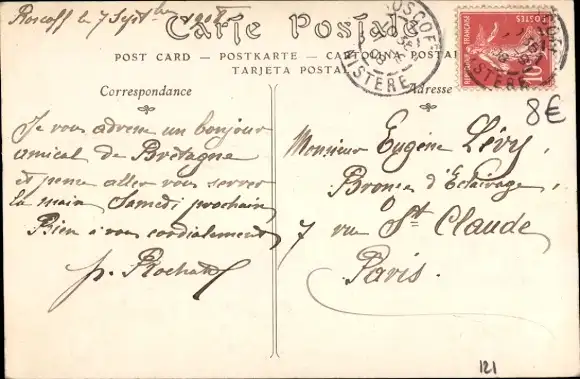 Roscoff le 7 Septbre 1908
Carte Postale
POST CARD — POSTKARTE — CARTOLINA POSTAL
TARJETA POSTAL
Correspondance
Je vous adresse un bonjour
amical de Bretagne
et pense aller vous serrer
la main Samedi prochain
Bien à vous cordialement
p. Rochat
Adresse
Monsieur Eugène Lévy,
Bronze d'Eclairage,
7 rue St Claude
Paris.
ROSCOFF
FINISTERE
POSTES
REPUBLIQUE FRANÇAISE
10
8€
121